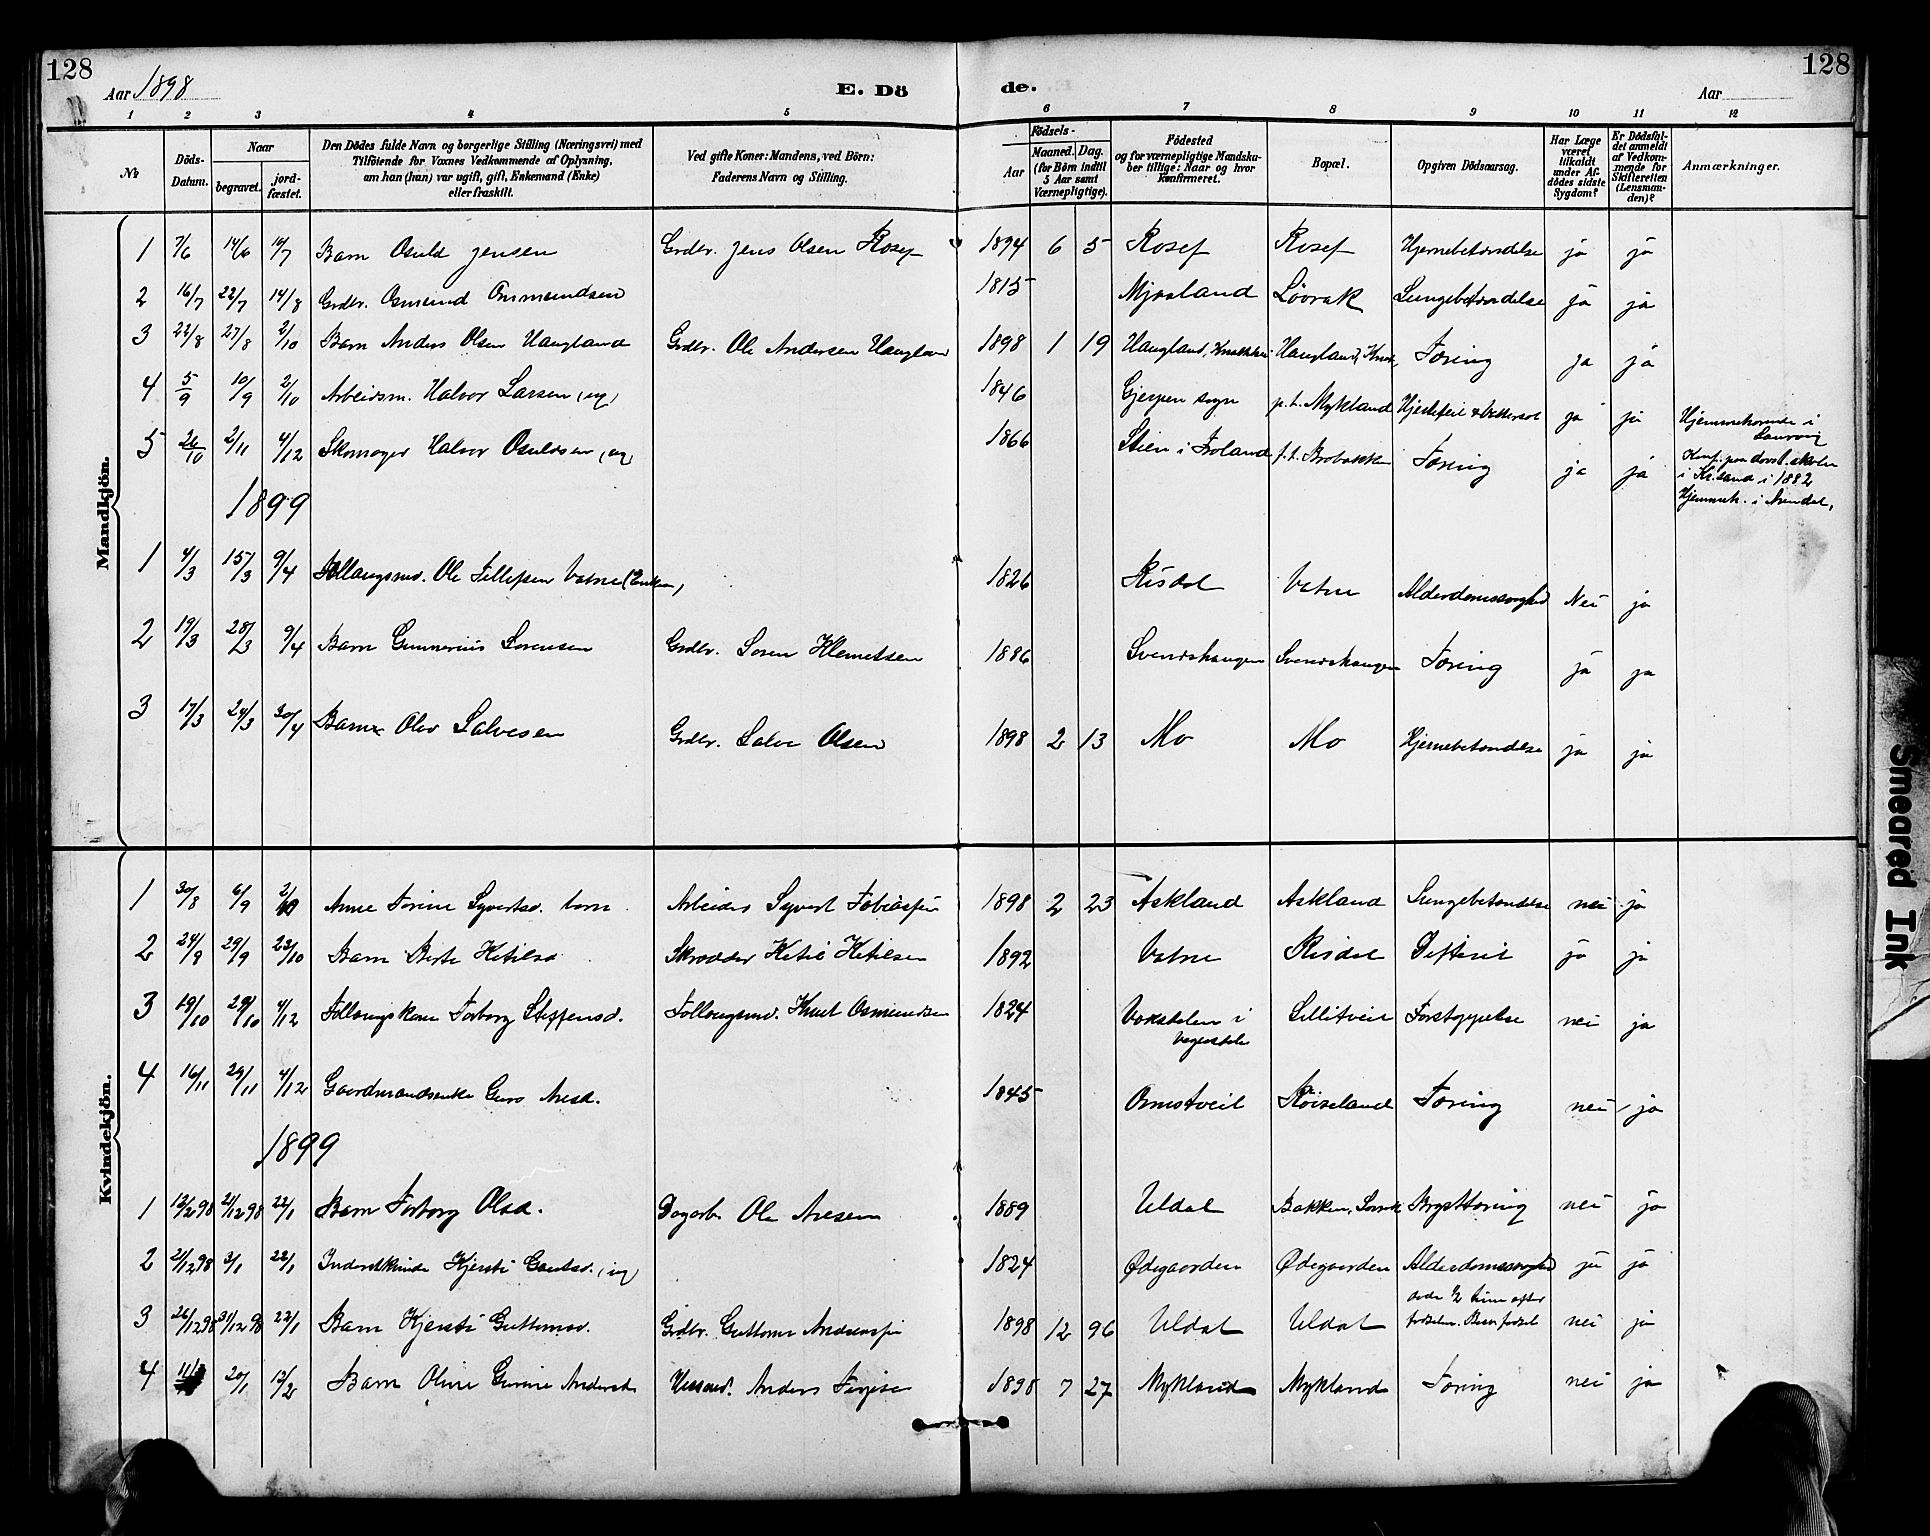 128
128
Aar 1898
E. Dö
de.
Aar
1 2 3 4 5 6 7 8 9 10 11 12
№
Döds-Datum.
Naar
begravet.
jord-fæstet.
Den Dödes fulde Navn og borgerlige Stilling (Næringsvei) med
Tilföiende for Voxnes Vedkommende af Oplysning,
om han (hun) var ugift, gift, Enkemand (Enke)
eller fraskilt.
Ved gifte Koner: Mandens, ved Börn:
Faderens Navn og Stilling.
Födsels-
Aar
Maaned. Dag.
(for Börn indtil
5 Aar samt
Værnepligtige).
Födested
og for værnepligtige Mandska-
ber tillige: Naar og hvor
Konfirmeret.
Bopæl.
Opgiven Dödsaarsag.
Har Læge
været
tilkaldt
under Af-
dödes sidste
Sygdom?
Er Dödsfal-
det anmeldt
af Vedkom-
mende for
Skifteretten
(Lensman-
den)?
Anmærkninger.
Mandkjön.
1 7/6 14/6 10/7 Barn Osuld Jensen Grdbr. Jens Olsen Rosef 1894 6 5 Rosef Rosef Hjernebetændelse ja ja
2 16/7 22/7 14/8 Grdbr. Osmund Ommundsen 1815 Mjaaland Løvrak Lungebetændelse ja ja
3 22/8 27/8 2/10 Barn Anders Olsen Haugland Grdbr. Ole Andersen Haugland 1898 1 19 Haugland, Haugland, Tæring ja ja
4 5/9 10/9 2/10 Arbeidsm. Halvor Larsen, ug, 1846 Gjerpen sogn p.t. Mykland Hjertefeil & Vattersot ja ja Hjemmehørende i
Laurvig
5 26/10 2/11 4/12 Skomager Halvor Osuldsen, ug 1866 Stien i Froland p.t. Brobakken Tæring ja ja Konf. paa døvst. skolen
i Kr.sand i 1882
Hjemmeh. i Arendal,
1899
1 4/3 15/3 9/4 Follaugsmd. Ole Tellefsen Vatne (Enkem, 1826 Risdal Vatne Alderdomssvaghed Nei ja
2 19/3 28/3 9/4 Barn Gunnerius Sørensen Grdbr. Søren Klemetsen 1886 Svendshaugen Svendshaugen Tæring ja ja
3 17/3 24/3 30/4 Barn Olav Salvesen Grdbr. Salve Olsen 1898 2 13 Mo Mo Hjernebetændelse ja ja
Kvindekjön.
1 30/8 6/9 2/10 Anne Torine Syvertsd. barn Arbeider Syvert Tobiassen 1898 2 23 Askland Askland Lungebetændelse nei ja
2 24/9 29/9 23/10 Barn Berte Ketilsd Skrædder Ketil Ketilsen 1892 Vatne Risdal Difterit ja ja
3 19/10 29/10 4/12 Follaugskone Torborg Steffensd. Follaugsmd. Knut Osmundsen 1824 Vokstølen i
Vegusdal Lillitveit Forstoppelse nei ja
4 16/11 24/11 4/12 Gaardmandsenke Guro Aresd. 1845 Omstveit Røiseland Tæring nei ja
1899
1 12/12 98 21/12 98 22/1 Barn Torborg Olsd. Dagarb. Ole Aresen 1889 Uldal Bakken, Brysttæring nei ja
2 21/12 98 3/1 22/1 Inderstkvinde Kjersti Gautsd., ug 1824 Ødegaarden Ødegaarden Alderdomssvaghed ja ja
3 26/12 98 31/12 98 22/1 Barn Kjersti Guttormsd. Grdbr. Guttorm Anderssen 1898 12 26 Uldal Uldal døde 1/2 time efter
fødselen. nei ja
4 20/1 12/2 Barn Oline Gurine Andersd Husmd. Anders Terjesen 1898 7 27 Mykland Mykland Tæring nei ja
Smeared Ink